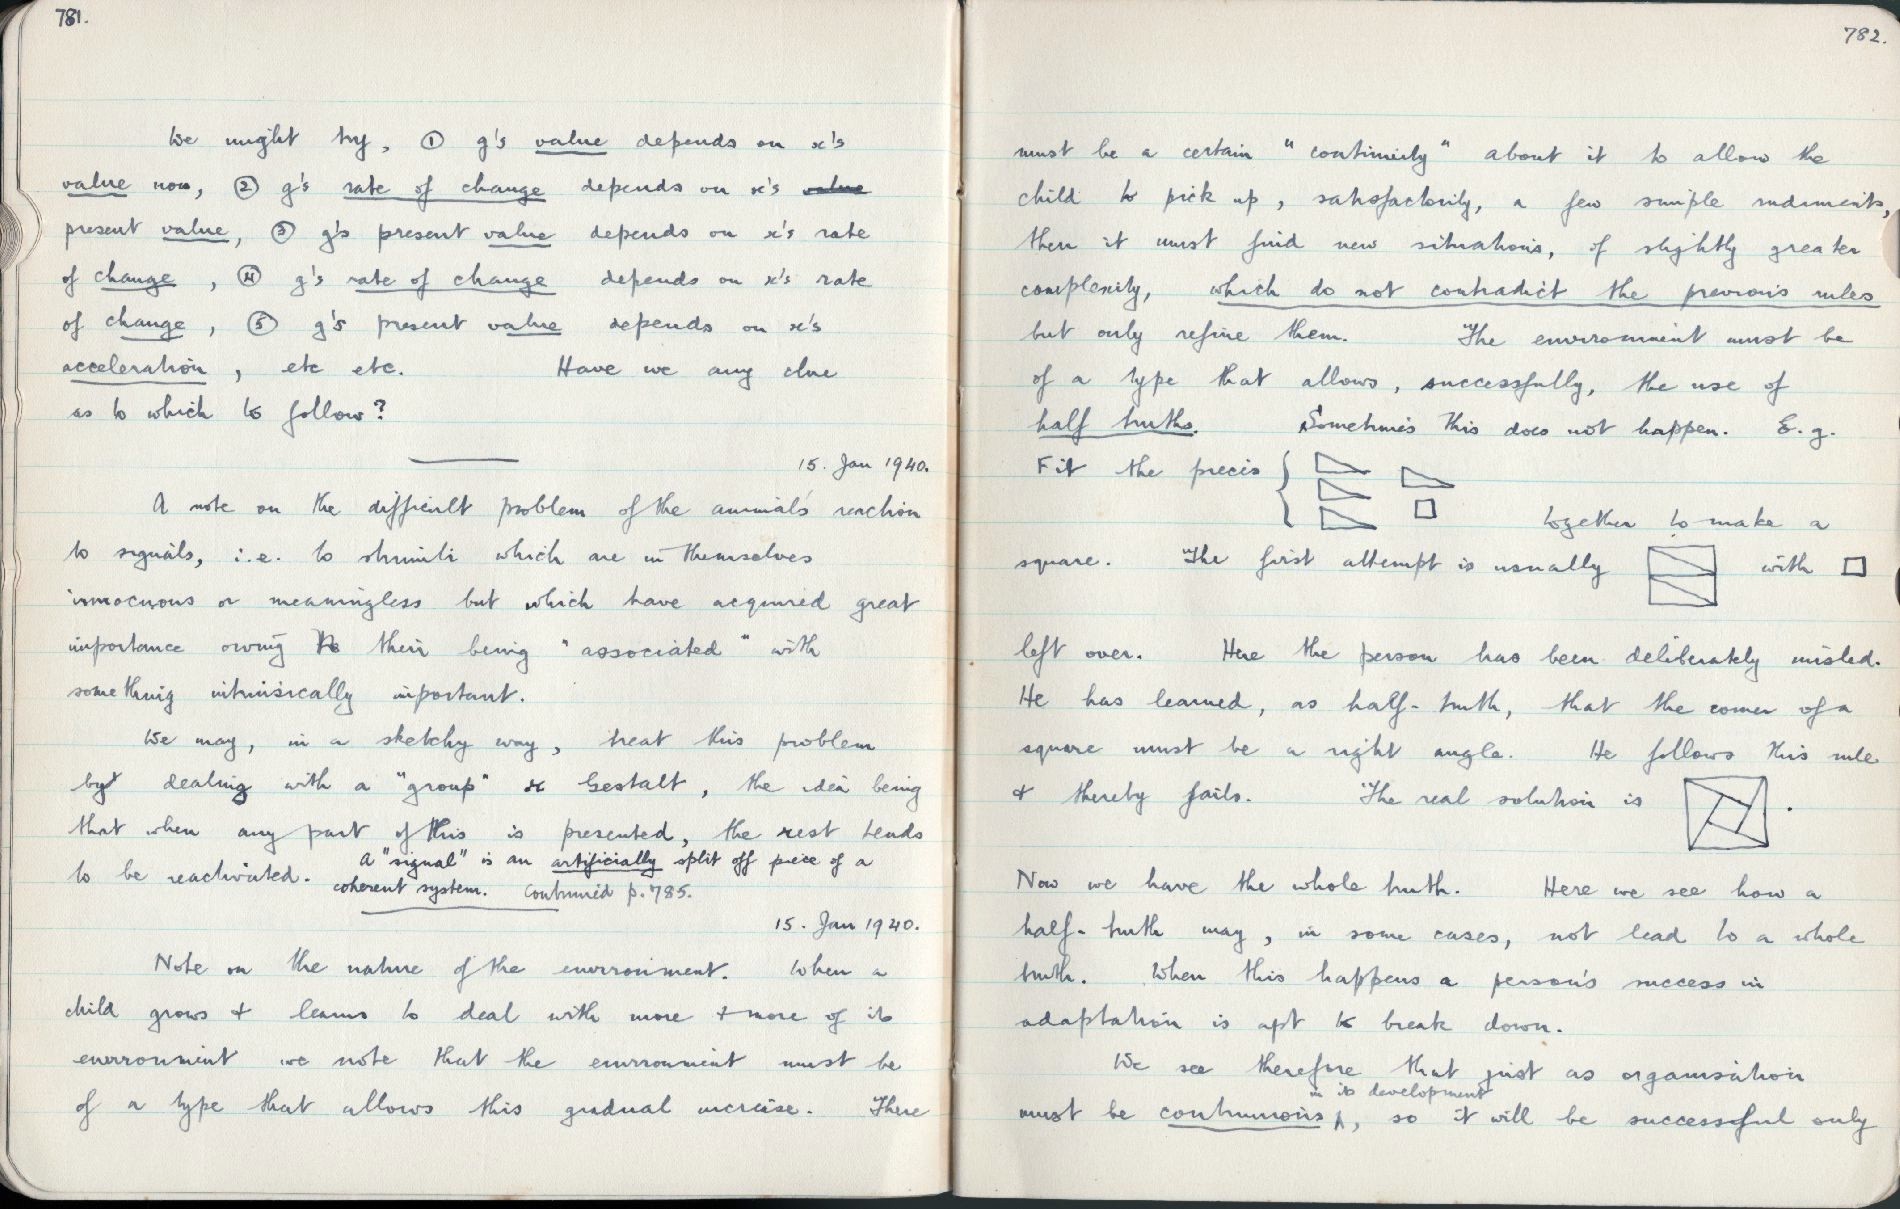 781.
We might try, ① g's value depends on x's
value now, ② g's rate of change depends on x's value
present value, ③ g's present value depends on x's rate
of change, ④ g's rate of change depends on x's rate
of change, ⑤ g's present value depends on x's
acceleration, etc etc. Have we any clue
as to which to follow?
15. Jan 1940.
A note on the difficult problem of the animal's reaction
to signals, i.e. to stimuli which are in themselves
innocuous or meaningless but which have acquired great
importance owing to their being "associated" with
something intrinsically important.
We may, in a sketchy way, treat this problem
by dealing with a "group" or Gestalt, the idea being
that when any part of this is presented, the rest tends
to be reactivated. A "signal" is an artificially split off piece of a
coherent system. Continued p. 785.
15. Jan 1940.
Note on the nature of the environment. When a
child grows & learns to deal with more & more of its
environment we note that the environment must be
of a type that allows this gradual increase. There
782.
must be a certain "continuity" about it to allow the
child to pick up, satisfactorily, a few simple rudiments,
then it must find new situations, of slightly greater
complexity, which do not contradict the previous rules
but only refine them. The environment must be
of a type that allows, successfully, the use of
half truths. Sometimes this does not happen. E.g.
Fit the pieces
together to make a
square. The first attempt is usually with
left over. Here the person has been deliberately misled.
He has learned, as half-truth, that the corner of a
square must be a right angle. He follows this rule
& thereby fails. The real solution is .
Now we have the whole truth. Here we see how a
half-truth may, in some cases, not lead to a whole
truth. When this happens a person's success in
adaptation is apt to break down.
We see therefore that just as organisation
in its development
must be continuous, so it will be successful only